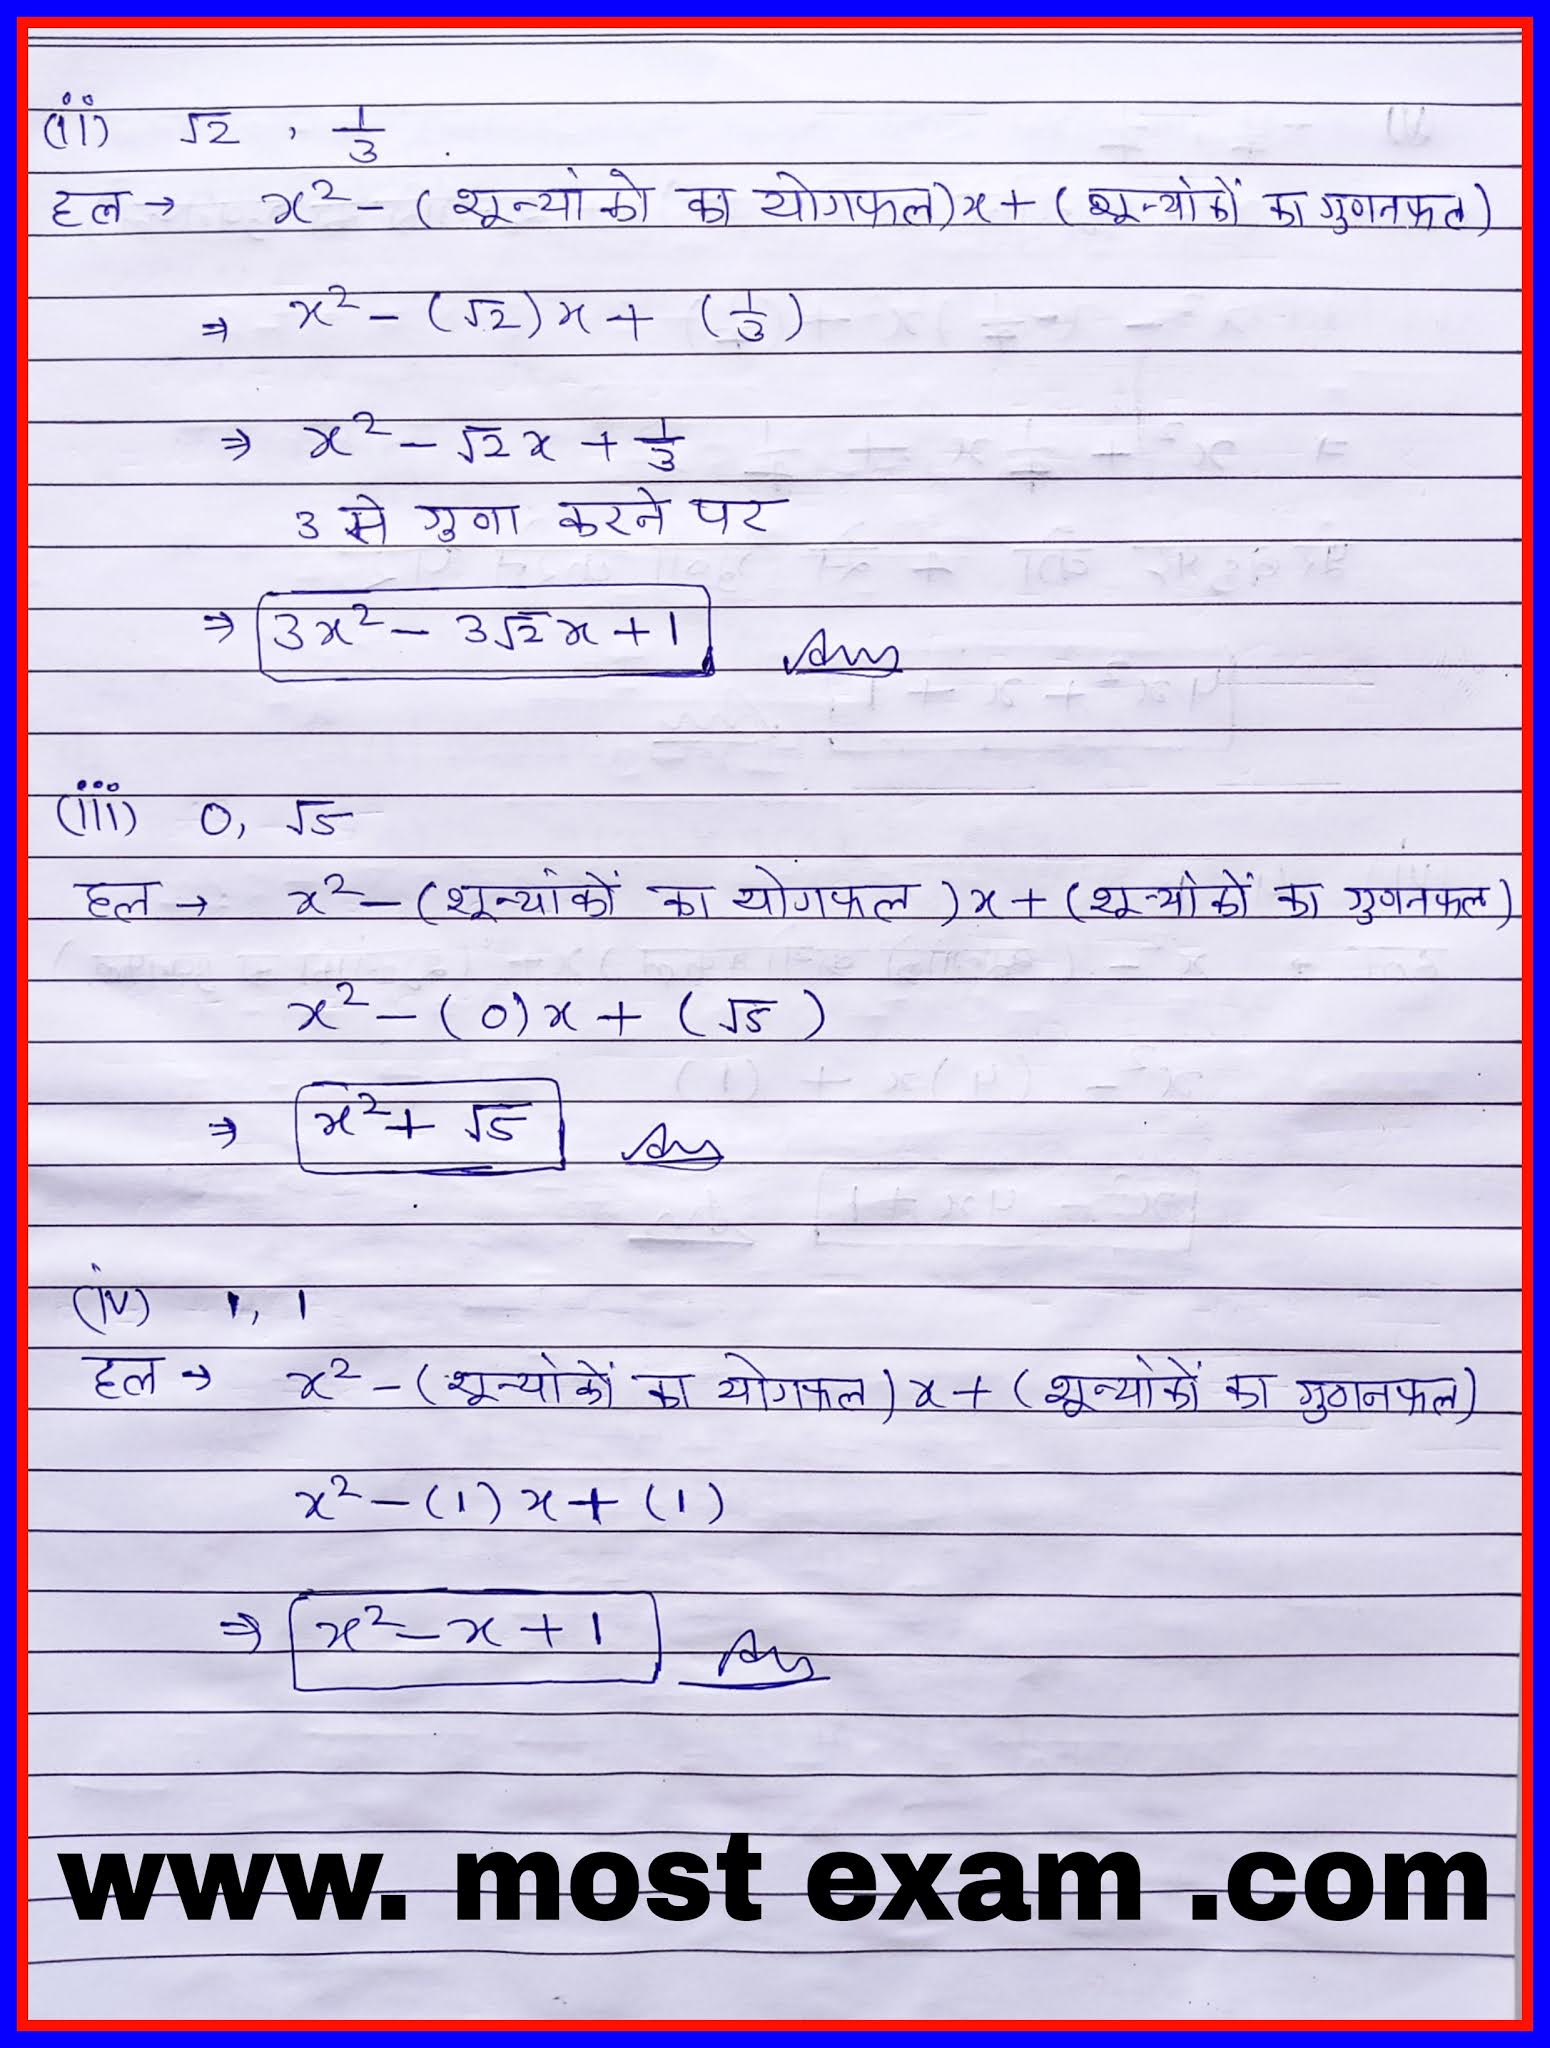 (ii) √2 , 1/3
हल → x² - (शून्यांको का योगफल)x + (शून्यांकों का गुणनफल)
⇒ x² - (√2)x + (1/3)
⇒ x² - √2x + 1/3
3 से गुणा करने पर
⇒ 3x² - 3√2x + 1 Ans
(iii) 0, √5
हल → x² - (शून्यांकों का योगफल)x + (शून्यांकों का गुणनफल)
x² - (0)x + (√5)
⇒ x² + √5 Ans
(iv) 1, 1
हल → x² - (शून्यांकों का योगफल)x + (शून्यांकों का गुणनफल)
x² - (1)x + (1)
⇒ x² - x + 1 Ans
www. most exam .com